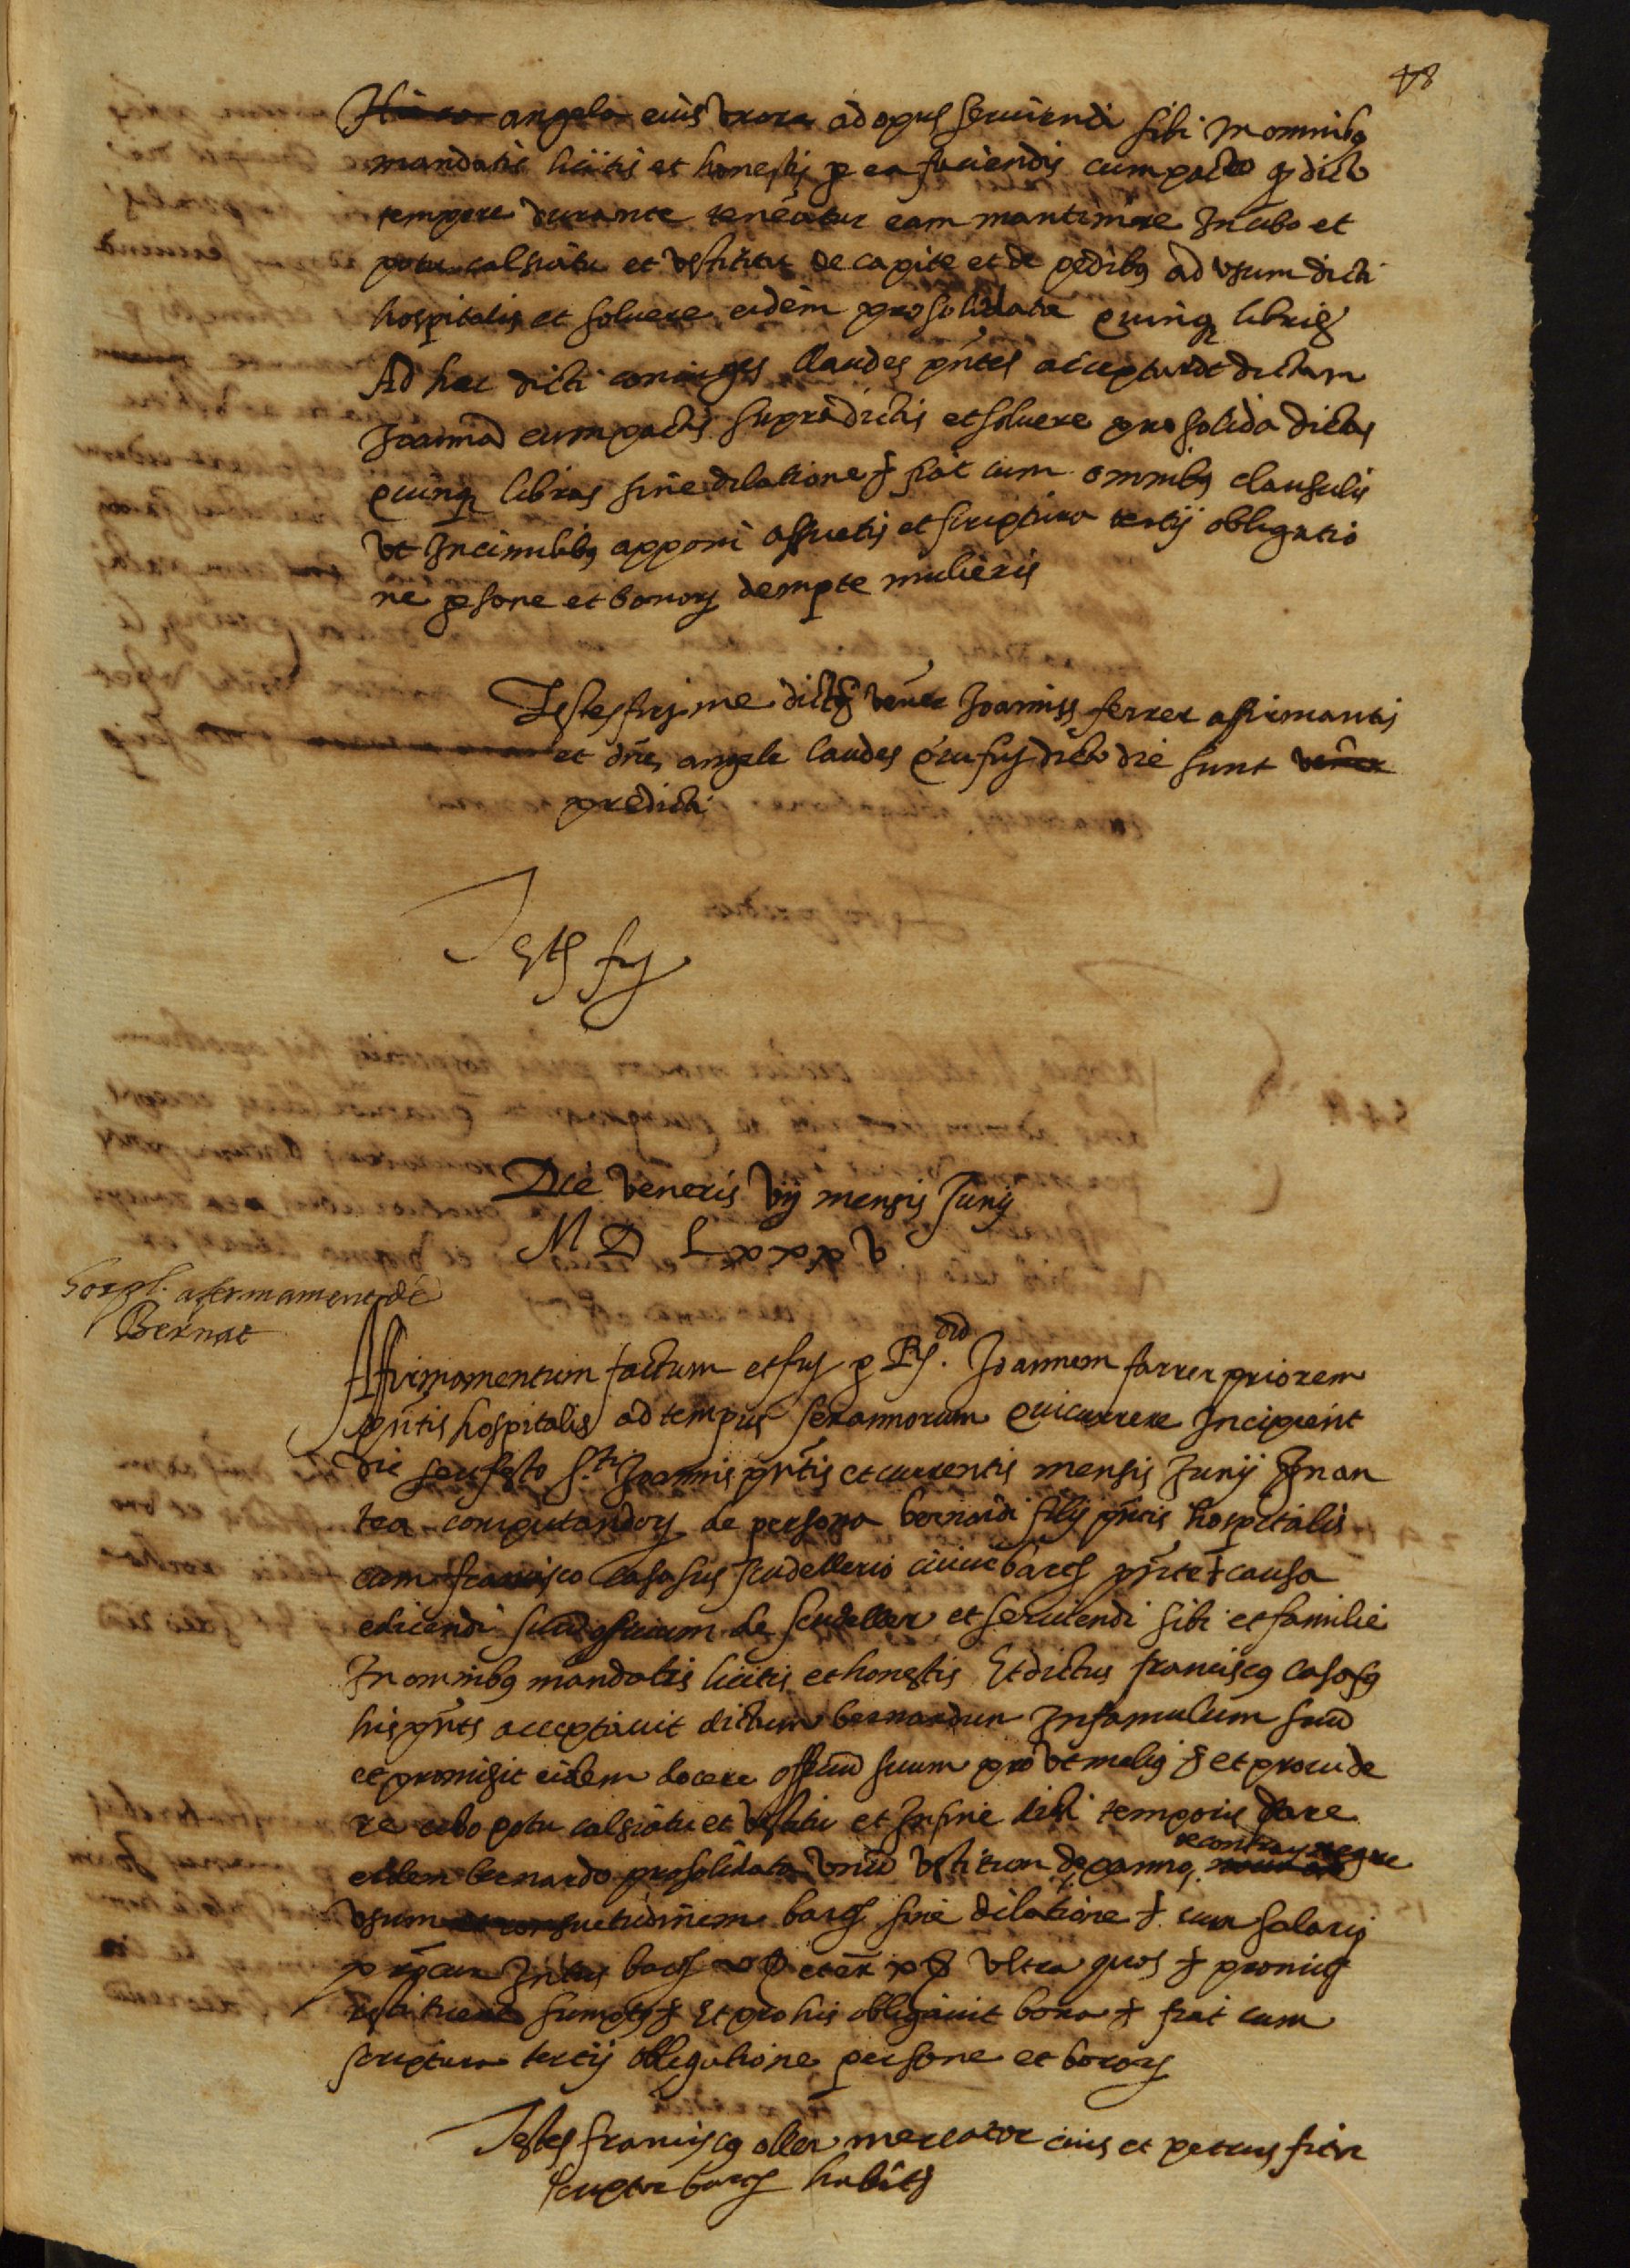 78
angela eius uxore ad opus serviendi sibi in omnibq
mandatis licitis et honestis p ea faciendis cum pacto q dicto
tempore durante teneatur eam mantinere In cibo et
potu calsiatu et vestitu de capite et de pedibq ad usum dicti
hospitalis et solvere eidem pro solidata quinq libris
Ad hec dicti coniuges Claudes pntes acceptarut dictam
Joannã cum pactis supradictis et solvere pro solida dictas
quinq libras sine dilatione † fiat cum omnibq clausulis
ut In similibq apponi assuetis et scriptura tertij obligatio
ne psone et bonorz dempte mulieris
Testes firj me dicti vener Joannis ferrer afirmantis
et dne angele laudes q firj dicto die sunt vener
predicti
Tests firj
Die veneris vij mensis Junij
M D Lxxxv
afermament de
Bernat
Affirmamentum factum et firj p R. dñ Joannem farrer priorem
pntis hospitalis ad tempus sex annorum qui currere Incipient
die seu festo Sti Joannis pntis et currentis mensis Junij In an
tea computandorz de persona bernardi filij pntis hospitalis
cum francisco casasus scudellerio cive barcs pnte † causa
edicendi suũ officium de scudeller et serviendi sibi et familie
In omnibq mandatis licitis et honestis Et dictus franciscq casasq
his pnts acceptavit dictum bernardum In famulum suũ
et promisit eidem docere offitiũ suum pro ut meliq § et provide
re cibo potu calsiatu et vestitu et In fine dicti temporis dare
eidem bernardo pro solidata unũ vestitum de panno de contray negre
usum et consuetudinem barcs sine dilatione † cum salario
pcur Intus barcs v § et ex x § ultra quos † promisit
restituere sumptq † Et pro his obligavit bona † fiat cum
scriptura tertij obligatione persone et bonorz
Testes franciscq oller mercator civis et petrus
scriptor barcs habits